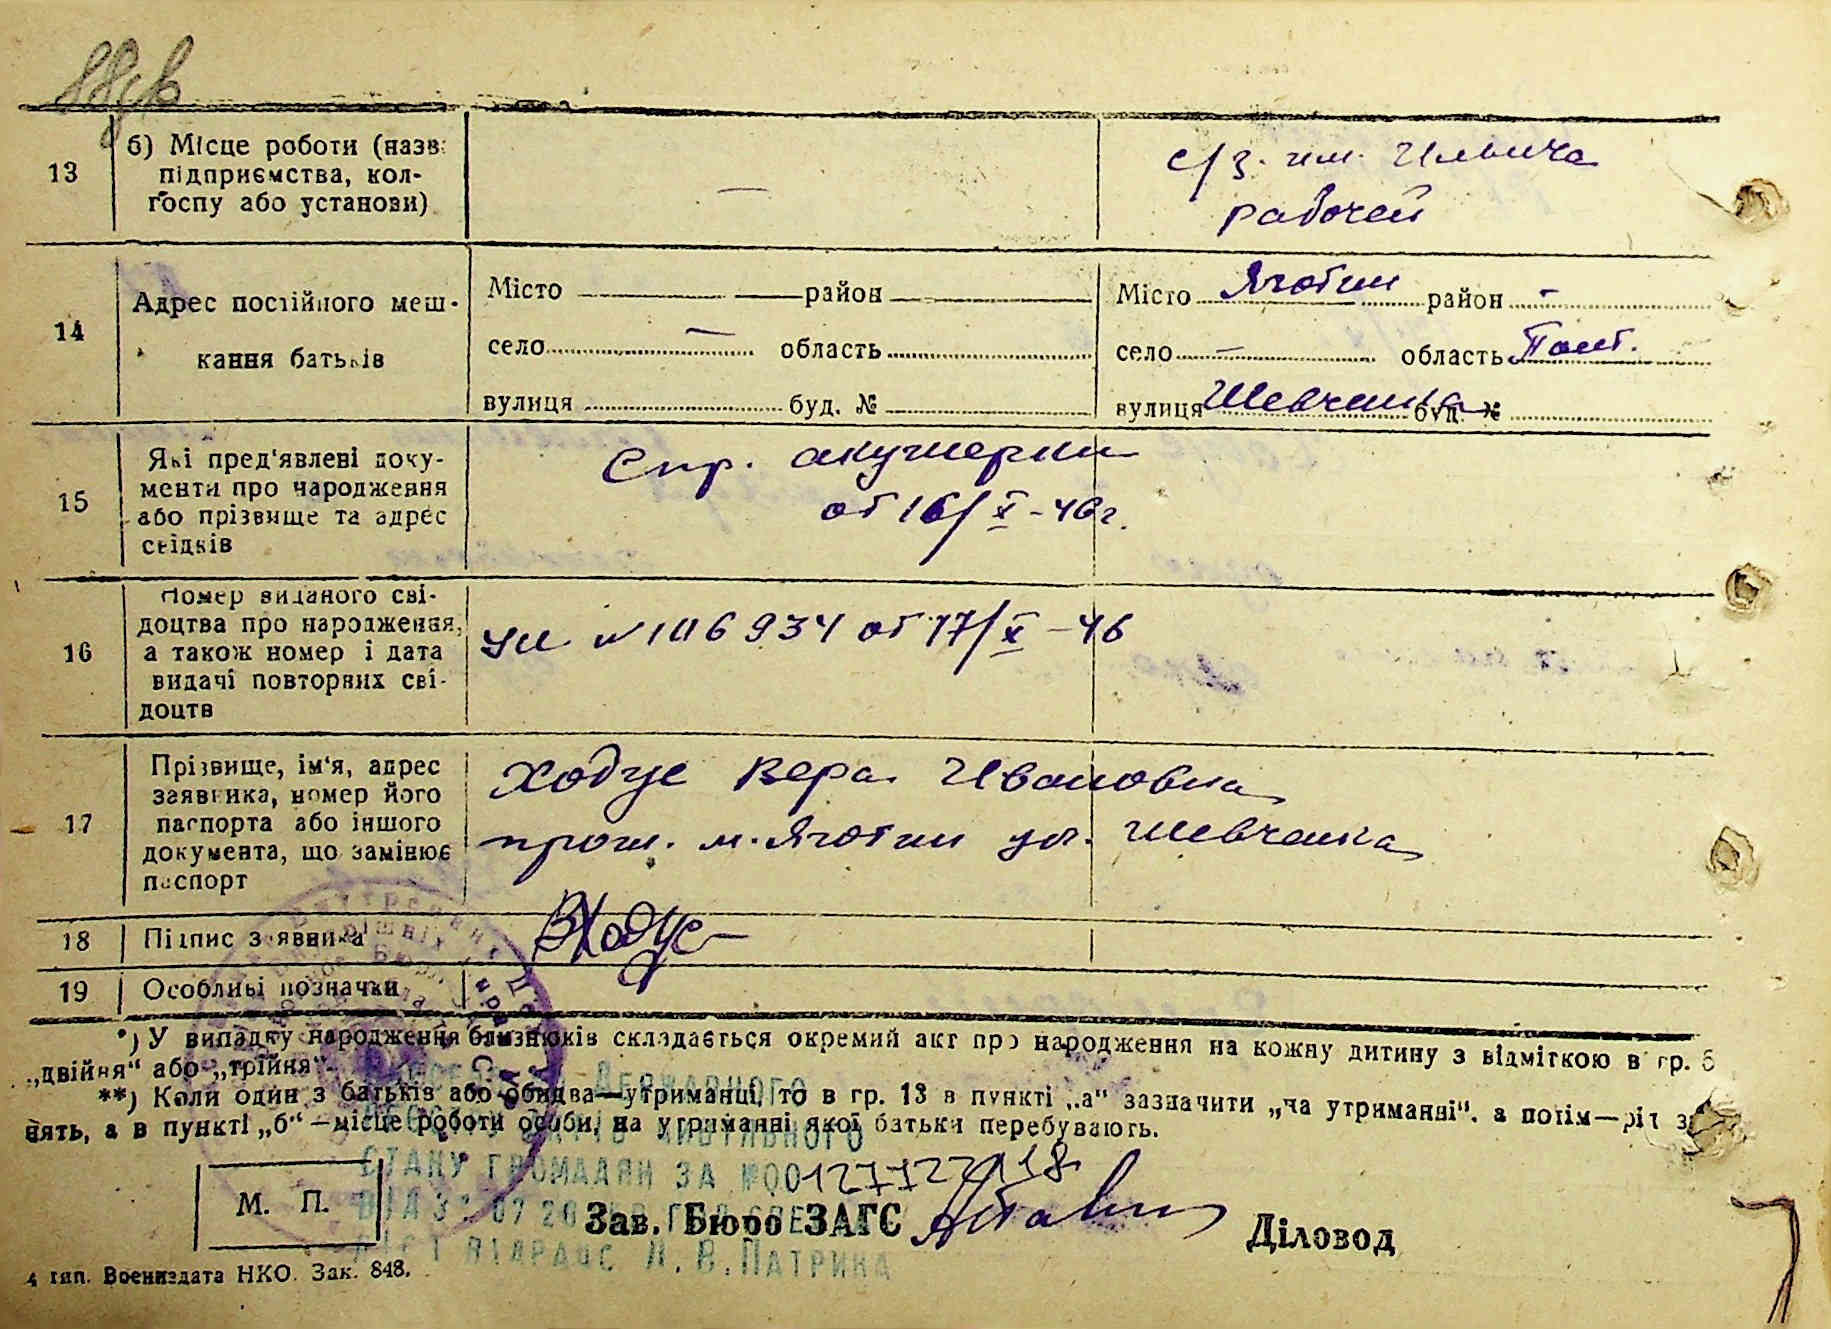 13
б) Місце роботи (назв.
підприємства, кол-
госпу або установи)
—
с/з. им. Ильича
рабочей
14
Адрес постійного меш-
кання батьків
Місто — район —
село — область
вулиця буд. №
Місто Яготин район -
село — область Полт.
вулиця Шевченка буд. №
15
Які пред'явлені доку-
менти про народження
або прізвище та адрес
свідків
Спр. акушерки
от 16/X-46г.
16
Номер виданого сві-
доцтва про народження,
а також номер і дата
видачі повторних сві-
доцтв
№ 106934 от 17/X-46
17
Прізвище, ім'я, адрес
заявника, номер його
паспорта або іншого
документа, що замінює
паспорт
Ходус Вера Ивановна
прож. м. Яготин ул. Шевченка
18
Підпис заявника
ВХодус
19
Особливі позначки
*) У випадку народження близнюків складається окремий акт про народження на кожну дитину з відміткою в гр. 6
„двійня" або „трійня".
**) Коли один з батьків або обидва—утриманці, то в гр. 13 в пункті „а" зазначити „на утриманні", а потім—
нять, а в пункті „б"—місце роботи особи, на утриманні якої батьки перебувають.
ДЕРЖАВНОГО
СТАНУ ГРОМАДЯН ЗА №00127722918
М. П.
Зав. Бюро ЗАГС
Діловод
Л.В.ПАТРИКА
4 тип. Воениздата НКО. Зак. 848.